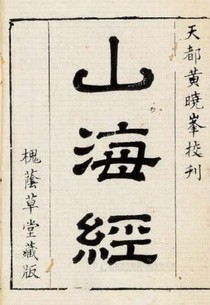 天都黄曉峯校刊
山海經
槐蔭草堂藏版